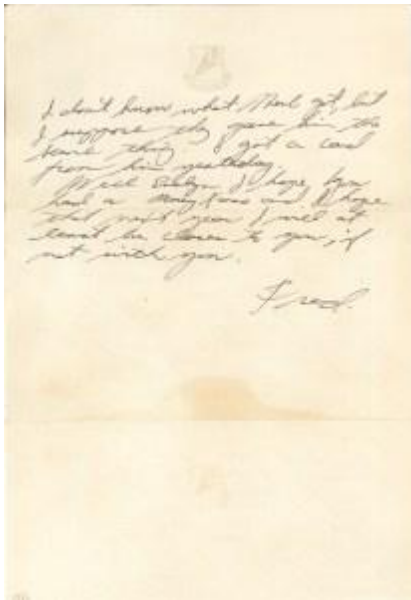 I don't know what Merl got, but
I suppose they gave him the
same thing I got a card
from him yesterday.
Well Evelyn I hope you
had a Merry Xmas and I hope
that next year I will at
least be closer to you, if
not with you.
Fred.